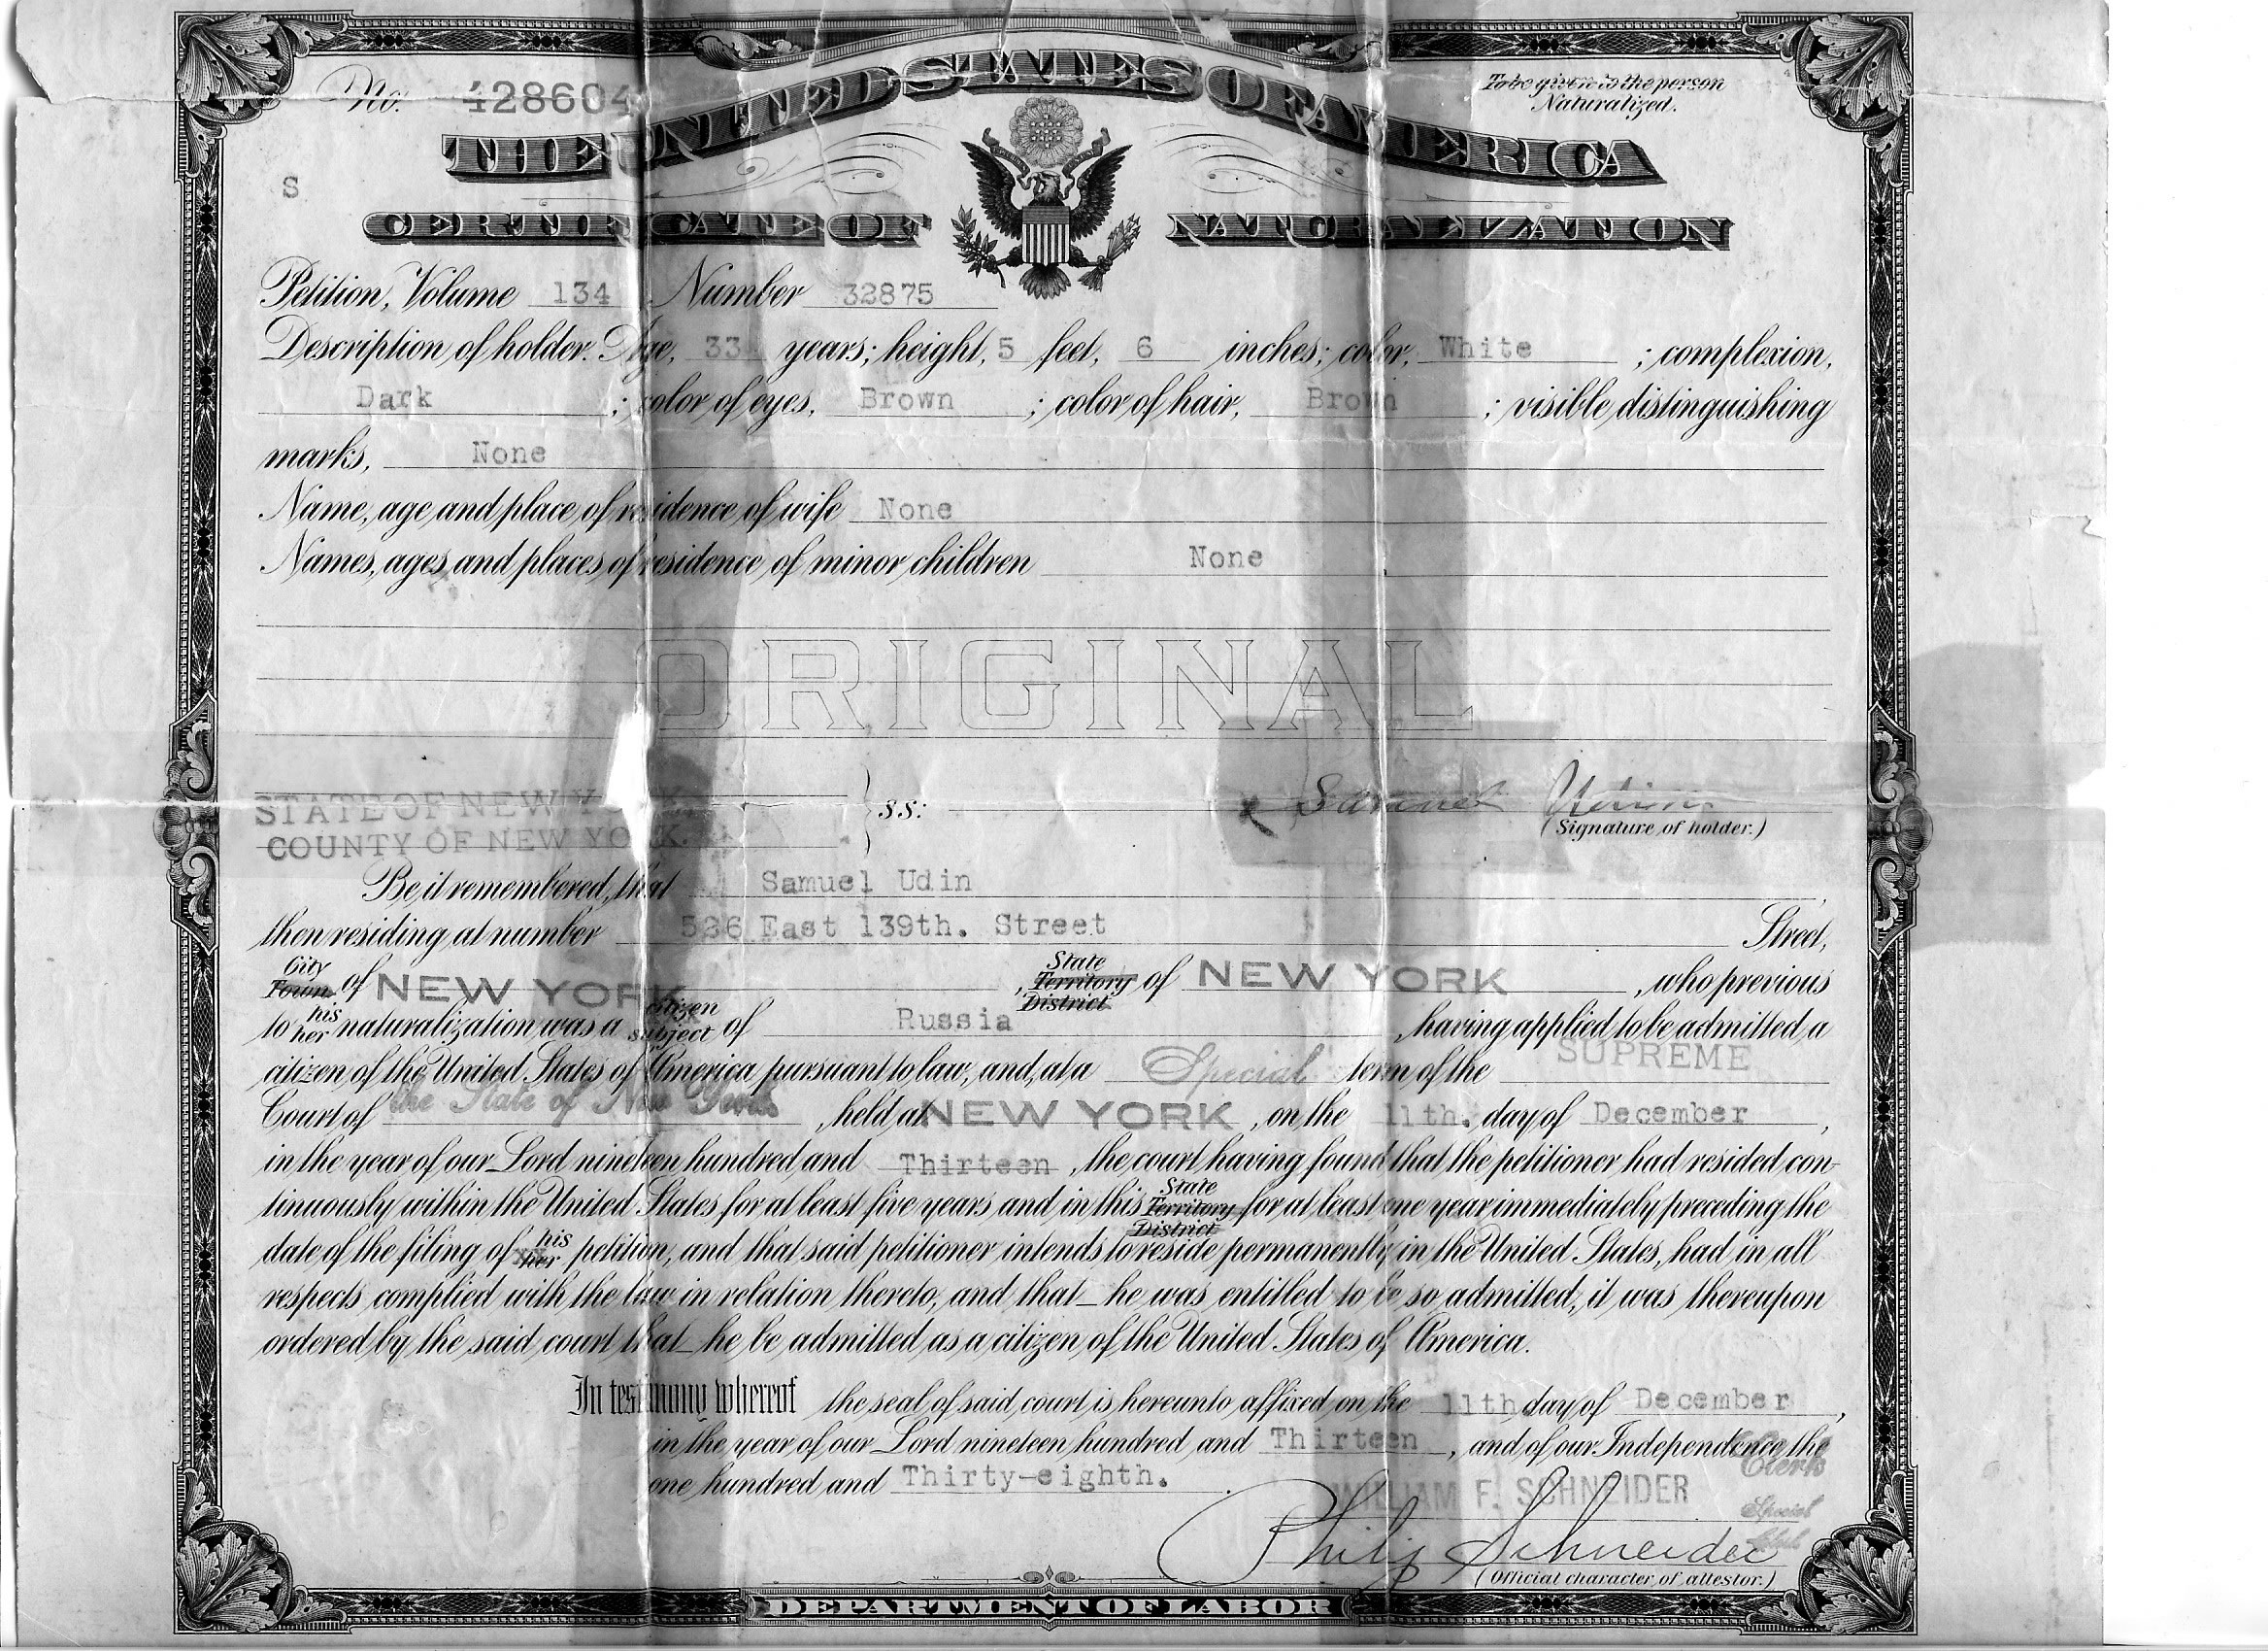 No. 428604
To be given to the person
Naturalized.
THE UNITED STATES OF AMERICA
S
CERTIFICATE OF NATURALIZATION
Petition, Volume 134 Number 32875
Description of holder. Age, 33 years; height, 5 feet, 6 inches; color, White ; complexion,
Dark ; color of eyes, Brown ; color of hair, Brown ; visible distinguishing
marks, None
Name, age and place of residence of wife None
Names, ages and places of residence of minor children None
ORIGINAL
STATE OF NEW YORK
COUNTY OF NEW YORK. } s.s: x Samuel Udin
(Signature of holder.)
Be it remembered, that Samuel Udin
then residing at number 536 East 139th. Street Street,
City Town of NEW YORK , State Territory District of NEW YORK , who previous
to his her naturalization was a citizen subject of Russia , having applied to be admitted a
citizen of the United States of America pursuant to law, and, at a Special term of the SUPREME
Court of the State of New York , held at NEW YORK , on the 11th. day of December ,
in the year of our Lord nineteen hundred and Thirteen , the court having found that the petitioner had resided con-
tinuously within the United States for at least five years and in this State Territory District for at least one year immediately preceding the
date of the filing of his her petition, and that said petitioner intends to reside permanently in the United States, had in all
respects complied with the law in relation thereto, and that he was entitled to be so admitted, it was thereupon
ordered by the said court that he be admitted as a citizen of the United States of America.
In testimony whereof the seal of said court is hereunto affixed on the 11th day of December ,
in the year of our Lord nineteen hundred and Thirteen , and of our Independence the
one hundred and Thirty-eighth.
Clerk
WILLIAM F. SCHNEIDER
Special
Philip Schneider
(Official character of attestor.)
DEPARTMENT OF LABOR